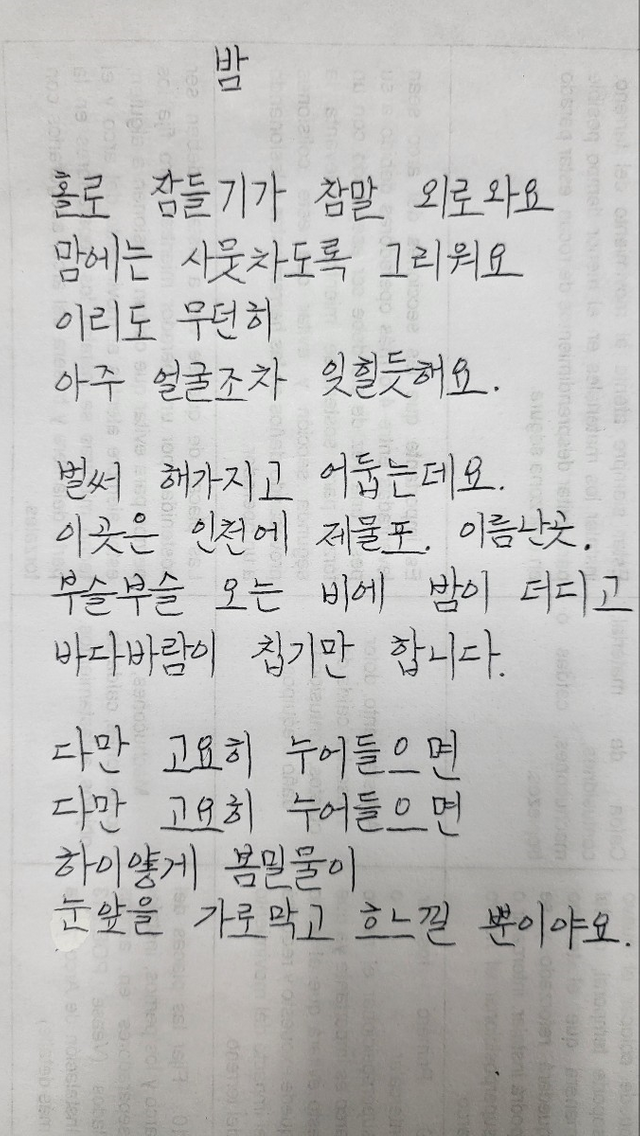 밤
홀로 잠들기가 참말 외로와요
맘에는 사뭇차도록 그리워요
이리도 무던히
아주 얼굴조차 잊힐듯해요.
벌써 해가지고 어둡는데요.
이곳은 인천에 제물포. 이름난곳.
부슬부슬 오는 비에 밤이 더디고
바다바람이 칩기만 합니다.
다만 고요히 누어들으면
다만 고요히 누어들으면
하이얗게 봄밀물이
눈앞을 가로막고 흐느낄 뿐이야요.